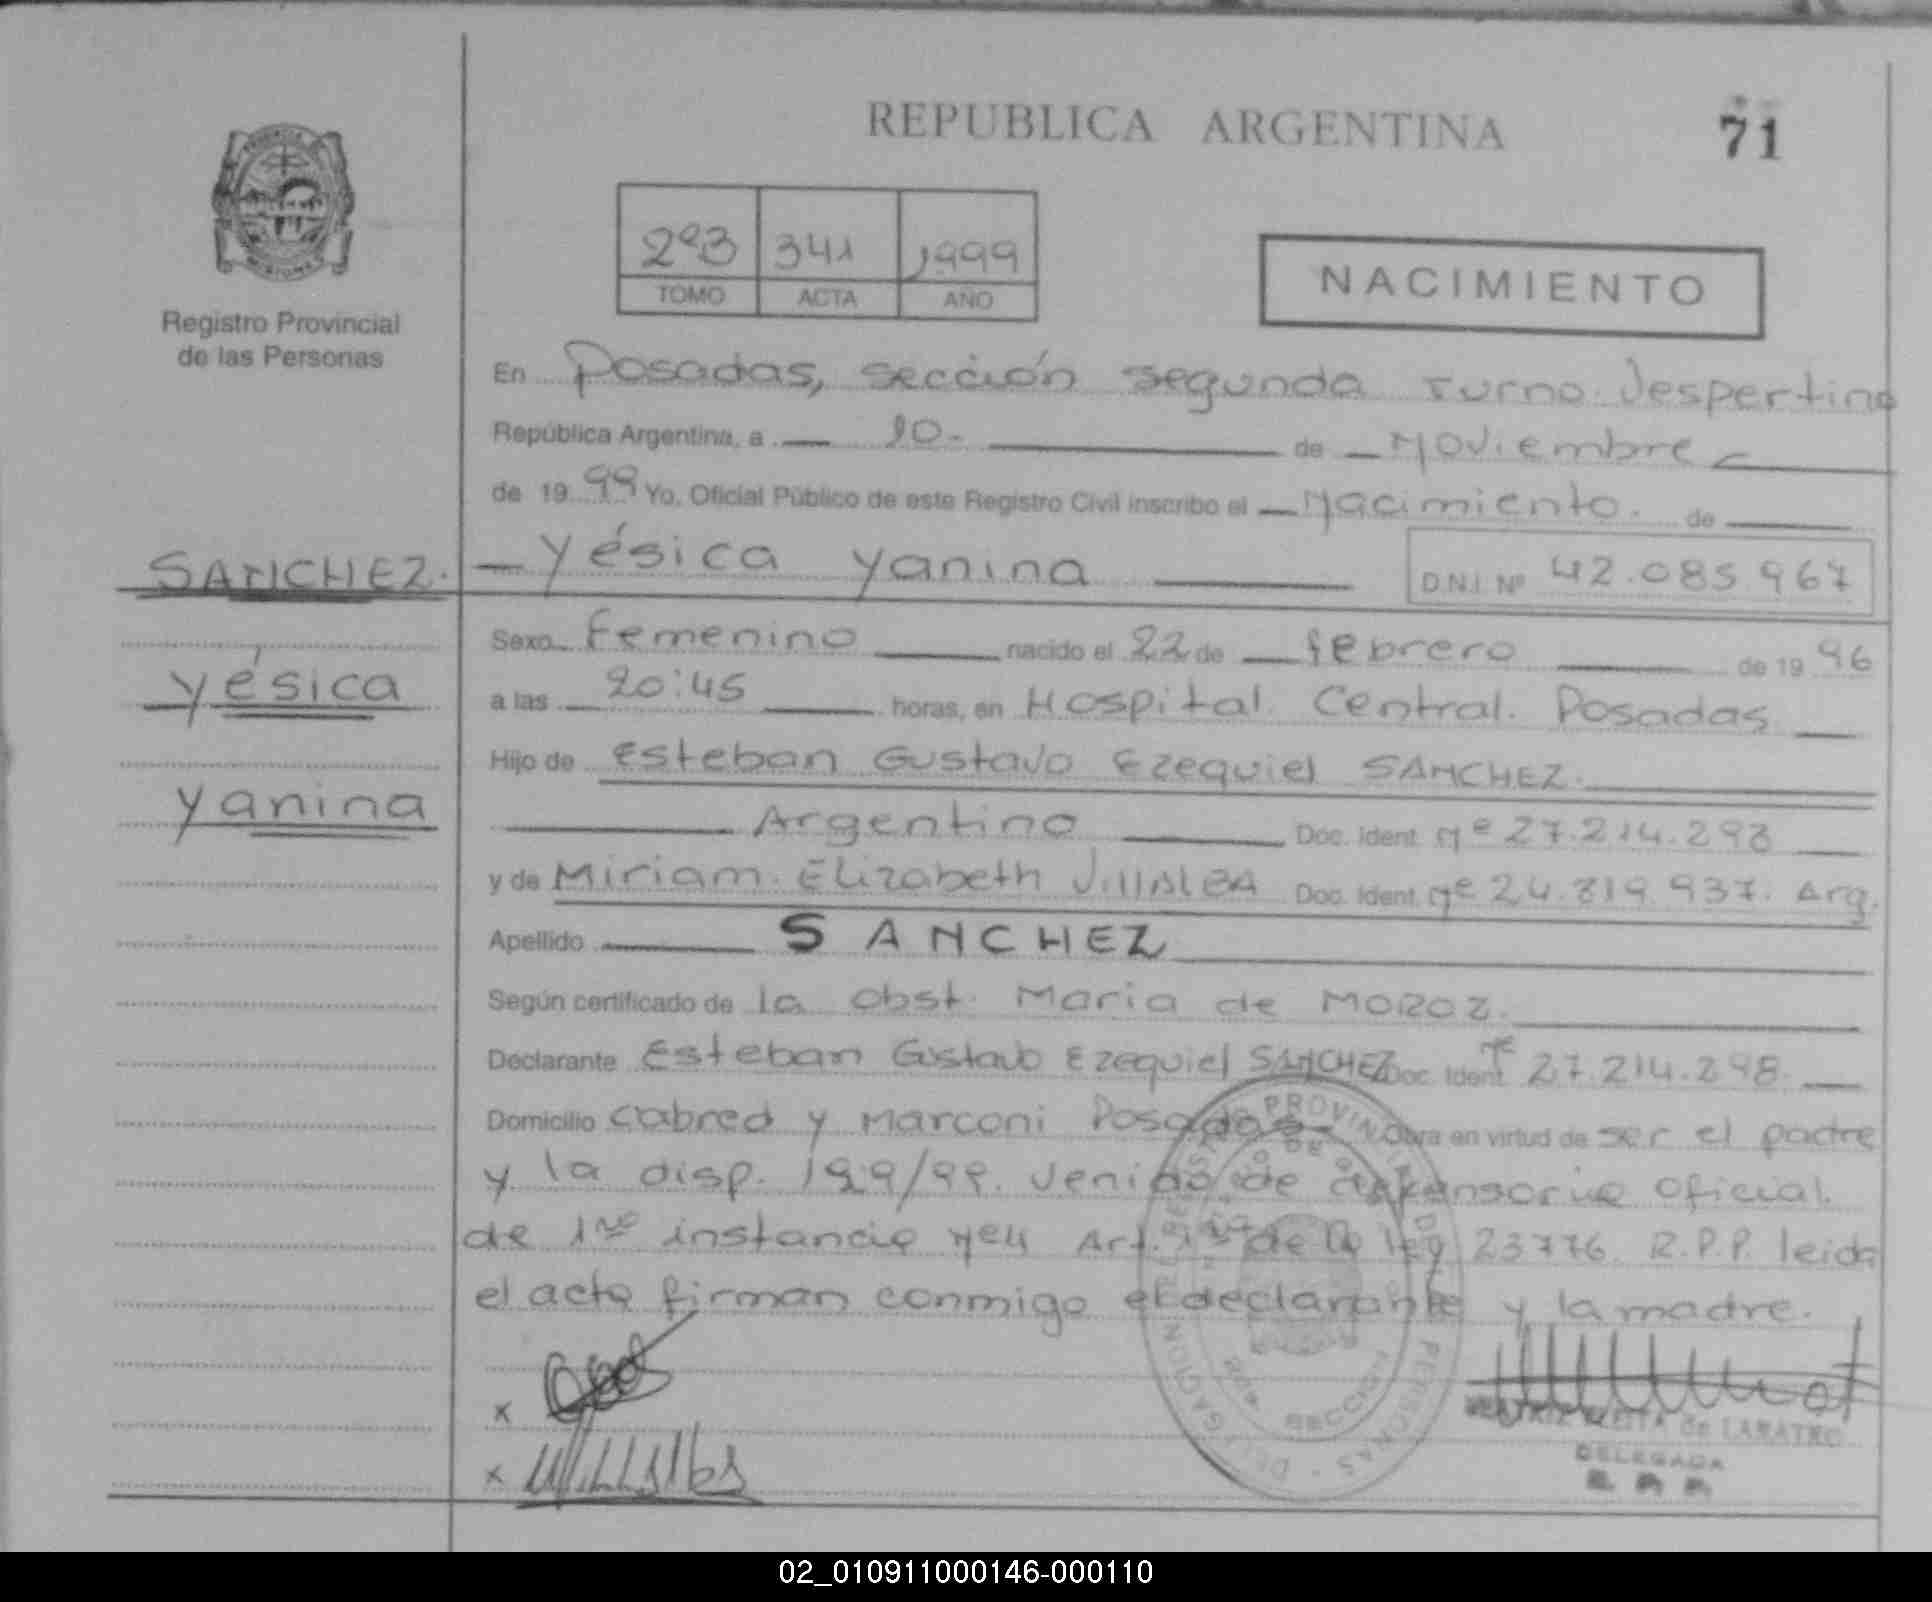 REPUBLICA ARGENTINA
71
2º3 341 1999
TOMO ACTA AÑO
NACIMIENTO
Registro Provincial
de las Personas
En Posadas, sección segunda Turno Vespertino
República Argentina, a 10 de Noviembre
de 1999 Yo, Oficial Público de este Registro Civil inscribo el Nacimiento. de
SANCHEZ.
Yésica Yanina
D.N.I. Nº 42.085.967
Sexo Femenino nacido el 22 de febrero de 1996
Yésica
a las 20:45 horas, en Hospital Central. Posadas
Hijo de Esteban Gustavo Ezequiel SANCHEZ.
Yanina
Argentino Doc. Ident. Nº 27.214.298
y de Miriam Elizabeth VillALBA Doc. Ident. Nº 24.819.937. Arg.
Apellido SANCHEZ
Según certificado de la Obst. Maria de MOROZ.
Declarante Esteban Gustavo Ezequiel SANCHEZ Doc. Ident. Nº 27.214.298.
Domicilio Cabred y Marconi Posadas Obra en virtud de ser el padre
y la disp. 199/99. de oficial.
de 1ra instancia Art. 1º de la ley 23776. R.P.P. leida
el acta firman conmigo el declarante y la madre.
x
x
de LABATRO
DELEGADA
R.P.P.
DELEGACION PERSONAS
2DA SECCION
02_010911000146-000110